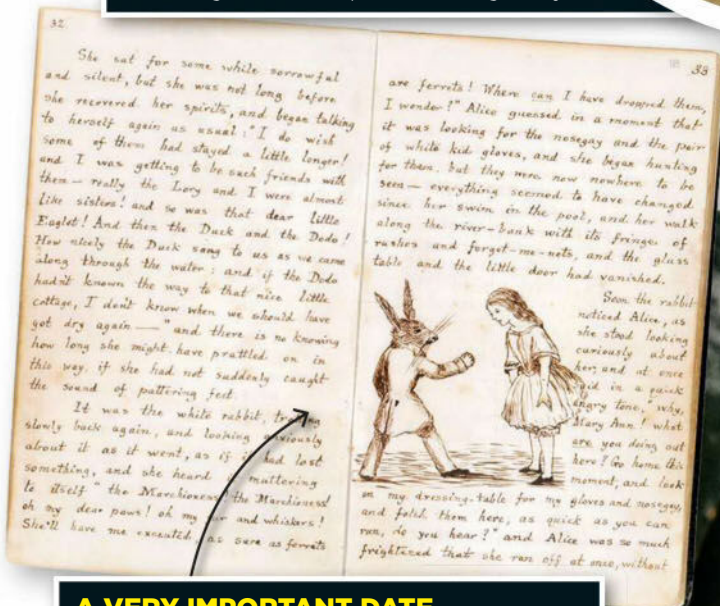 32.
She sat for some while sorrowful
and silent, but she was not long before
she recovered her spirits, and began talking
to herself again as usual: "I do wish
some of them had stayed a little longer!
and I was getting to be such friends with
them — really the Lory and I were almost
like sisters! and so was that dear little
Eaglet! And then the Duck and the Dodo!
How nicely the Duck sang to us as we came
along through the water: and if the Dodo
hadn't known the way to that nice little
cottage, I don't know when we should have
got dry again —" and there is no knowing
how long she might have prattled on in
this way, if she had not suddenly caught
the sound of pattering feet.
It was the white rabbit, trotting
slowly back again, and looking anxiously
about it as it went, as if it had lost
something, and she heard it muttering
to itself "the Marchioness! the Marchioness!
oh my dear paws! oh my fur and whiskers!
She'll have me executed, as sure as ferrets
33
are ferrets! Where can I have dropped them,
I wonder?" Alice guessed in a moment that
it was looking for the nosegay and the pair
of white kid gloves, and she began hunting
for them, but they were now nowhere to be
seen — everything seemed to have changed
since her swim in the pool, and her walk
along the river-bank with its fringe of
rushes and forget-me-nots, and the glass
table and the little door had vanished.
Soon the rabbit
noticed Alice, as
she stood looking
curiously about
her, and at once
said in a quick
angry tone, "why,
Mary Ann! what
are you doing out
here? Go home this
moment, and look
on my dressing-table for my gloves and nosegay,
and fetch them here, as quick as you can
run, do you hear?" and Alice was so much
frightened that she ran off at once, without
A VERY IMPORTANT DATE